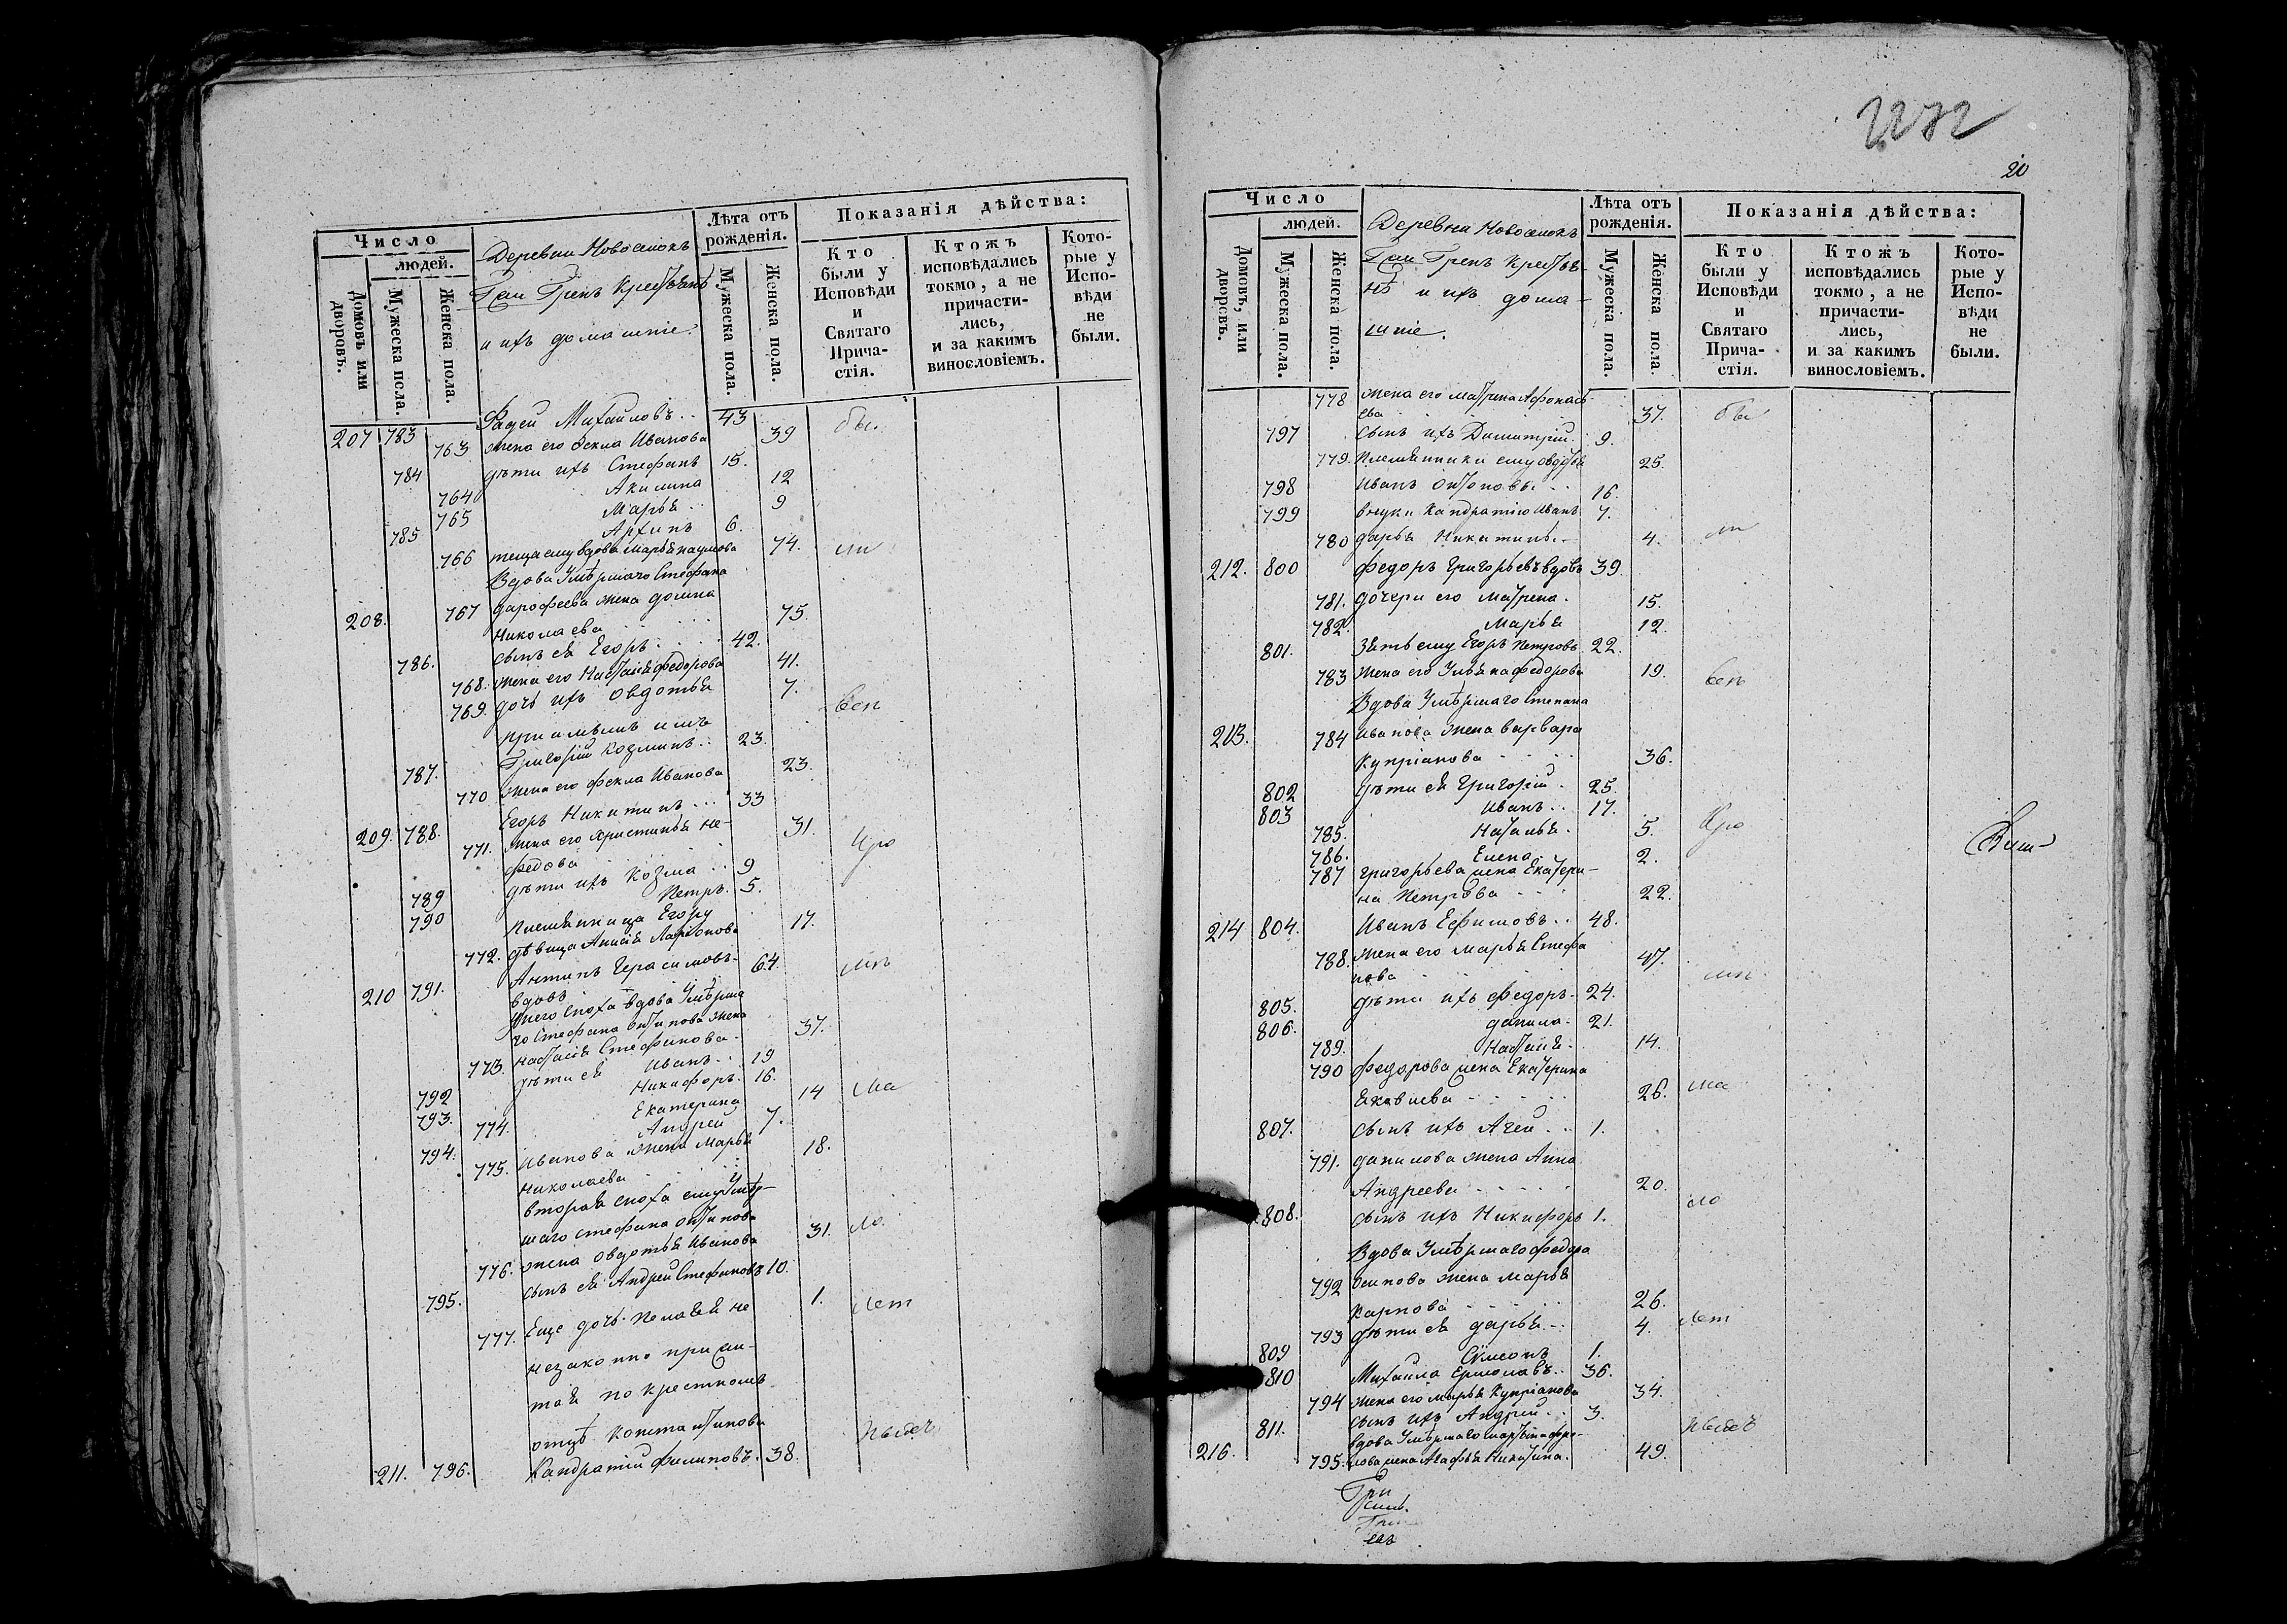 Число
людей.
Домовъ или дворовъ.
Мужеска пола.
Женска пола.
Деревни Новоселокъ
крестьянъ
и ихъ домашніе.
Лѣта отъ рожденія.
Мужеска пола.
Женска пола.
Показанія дѣйства:
Кто были у Исповѣди и Святаго Причастія.
Ктожъ исповѣдались токмо, а не причастились, и за какимъ винословіемъ.
Которые у Исповѣди не были.
207 783 Фадей Михайловъ 43
763 жена его Фекла Иванова 39 бы
784 дѣти ихъ Стефанъ 15.
764 Акилина 12
765 Марья 9
785 Архипъ 6.
766 теща ему вдова Марья наумова 74. ли
Вдова Умѣршаго Стефана
208. 767 дарофеева жена домна
Николаева 75.
786. сынъ ея Егоръ 42.
768. жена его Настасья федорова 41.
769. дочь ихъ овдотья 7. всп
787. Григорій Козминъ 23.
770 жена его фекла Иванова 23.
209. 788. Егоръ Никитинъ 33
771. жена его христинья не-
федова 31. Иро
789 дѣти ихъ Козма 9
790 Петръ. 5.
племянница Егору
772. дѣвица Анисья Ларіонова 17.
210 791. Антипъ Герасимовъ
вдовъ 64.
него сноха вдова Умѣрша
го Стефана антипова жена
773. настасья Стефанова 37.
792 дѣти ея Иванъ 19
793. Никифоръ 16.
774. Екатерина 14 ма
794. Андрей 7.
775. Иванова жена Марья
Николаева 18.
вторая сноха ему Умѣр-
шаго стефана антипова
776. жена овдотья Иванова 31. ло.
795. сынъ ея Андрей Стефановъ 10.
777. Еще дочь Пелагея не 1. лет
незаконно прижи-
тая по крестномъ
отцѣ Константинова
211. 796. Кандратій филиповъ. 38.
20
Число
людей.
Домовъ, или дворовъ.
Мужеска пола.
Женска пола.
Деревни Новоселокъ
крестья-
нъ и ихъ дома-
шніе.
Лѣта отъ рожденія.
Мужеска пола.
Женска пола.
Показанія дѣйства:
Кто были у Исповѣди и Святаго Причастія.
Ктожъ исповѣдались токмо, а не причастились, и за какимъ винословіемъ.
Которые у Исповѣди не были.
778 жена его матрена Афонась
ева 37. бы
797 сынъ ихъ Димитрій 9.
779. племянники ему овдотья 25.
798 Иванъ антоновы 16.
799 внуки Кандратію Иванъ 7.
780 дарья Никитины 4. ли
212. 800 федоръ Григорьевъ вдовъ 39.
781. дочери его Матрена 15.
782. Марья 12.
801. Зять ему Егоръ Петровъ 22.
783 жена его Ульяна федорова 19. всп
Вдова Умѣршаго Степана
213. 784 Иванова жена варвара
Купріанова 36.
802 дѣти ея Григорій 25.
803 Иванъ 17.
785. Наталья 5. Иро
786. Елена 2.
787 григорьева жена Екатери-
на Петрова 22.
214 804. Иванъ Ефимовъ 48.
788. жена его марья Стефа
нова 47.
805. дѣти ихъ федоръ 24.
806. данила 21.
789. Настасья 14.
790 федорова жена Екатерина
Яковлева 26. ма
807. сынъ ихъ Агей 1.
791. данилова жена Анна
Андреева 20.
808. сынъ ихъ Никифоръ 1. ло
Вдова Умѣршаго федора
792 осипова жена марья
Карпова 26.
793 дѣти ея дарья 4. лет
809 Сүмеонъ 1.
810 Михайла Ермолавъ 36.
794 жена его марья Купріанова 34.
811. сынъ ихъ Андрей 3.
вдова Умѣршаго мартына
216. 795. жена Агафья Никитина. 49.